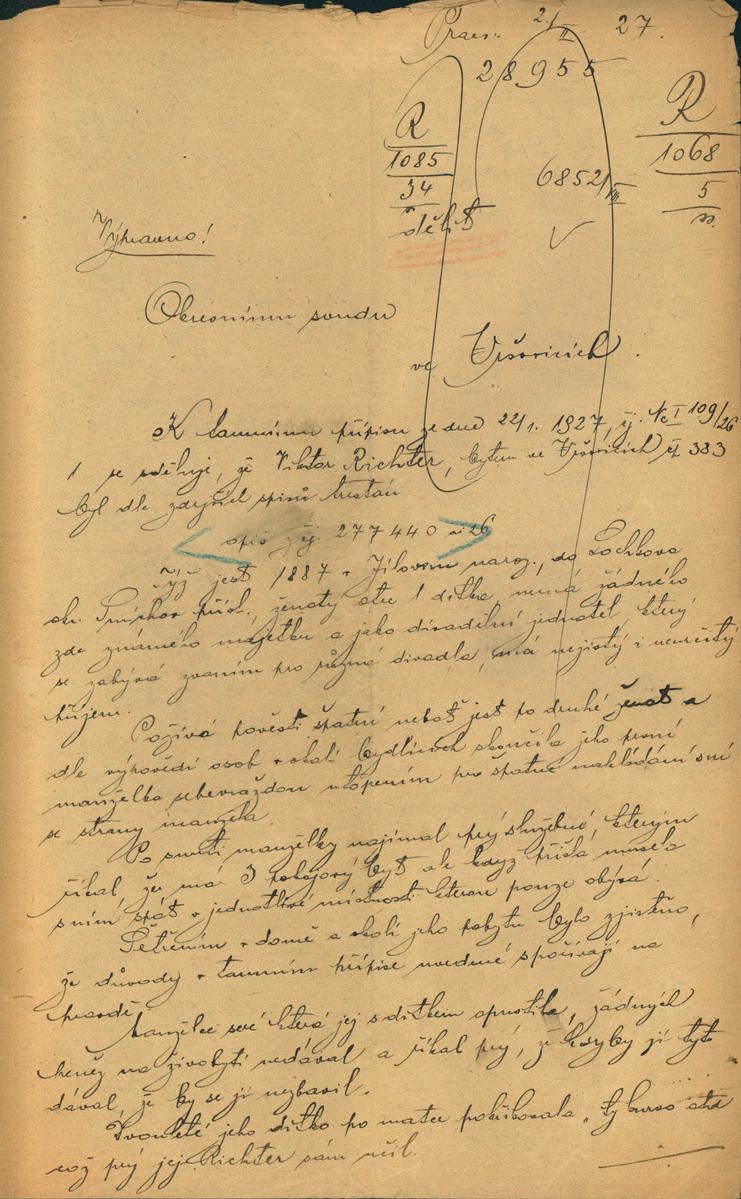 Praes: 2/II 27.
28955
R
1085
34
R
1068
5
6852/III
Výpravno!
Okresnímu soudu
ve Vršovicích.
K tamnímu přípisu ze dne 22/1. 1927, čj. Nc I 109/26
1 se sděluje, že Viktor Richter, bytem ve Vršovicích čp 383
byl dle zdejších spisů trestán
opis z čj. 277440 ai 26
Týž jest 1887 v Jílovém naroz., do Lochkova
okr. Smíchov přísl., ženatý otec 1 dítka, nemá žádného
zde známého majetku a jako divadelní jednatel který
se zabývá psaním pro různá divadla, má nejistý i neurčitý
příjem.
Požívá pověsti špatné neboť jest po druhé ženat a
dle výpovědí osob v okolí bydlících skončila jeho první
manželka sebevraždou utopením pro špatné nakládání s ní
se strany manžela.
Po smrti manželky najímal prý služebné, kterým
říkal, že má 3 pokojový byt ale když přišla musela
s ním spát v jednotlivé místnosti kterou pouze obývá.
Šetřením v domě a okolí jeho pobytu bylo zjištěno,
že důvody v tamním přípise uvedené spočívají na
pravdě.
Manželce své která jej s dítkem opustila, žádných
peněz na živobytí nedával a říkal prý, že kdyby jí tyto
dával, že by se jí nezbavil.
Dvouleté jeho dítko po matce pokřikovala „ty kurvo atd
což prý jej Richter sám učil.